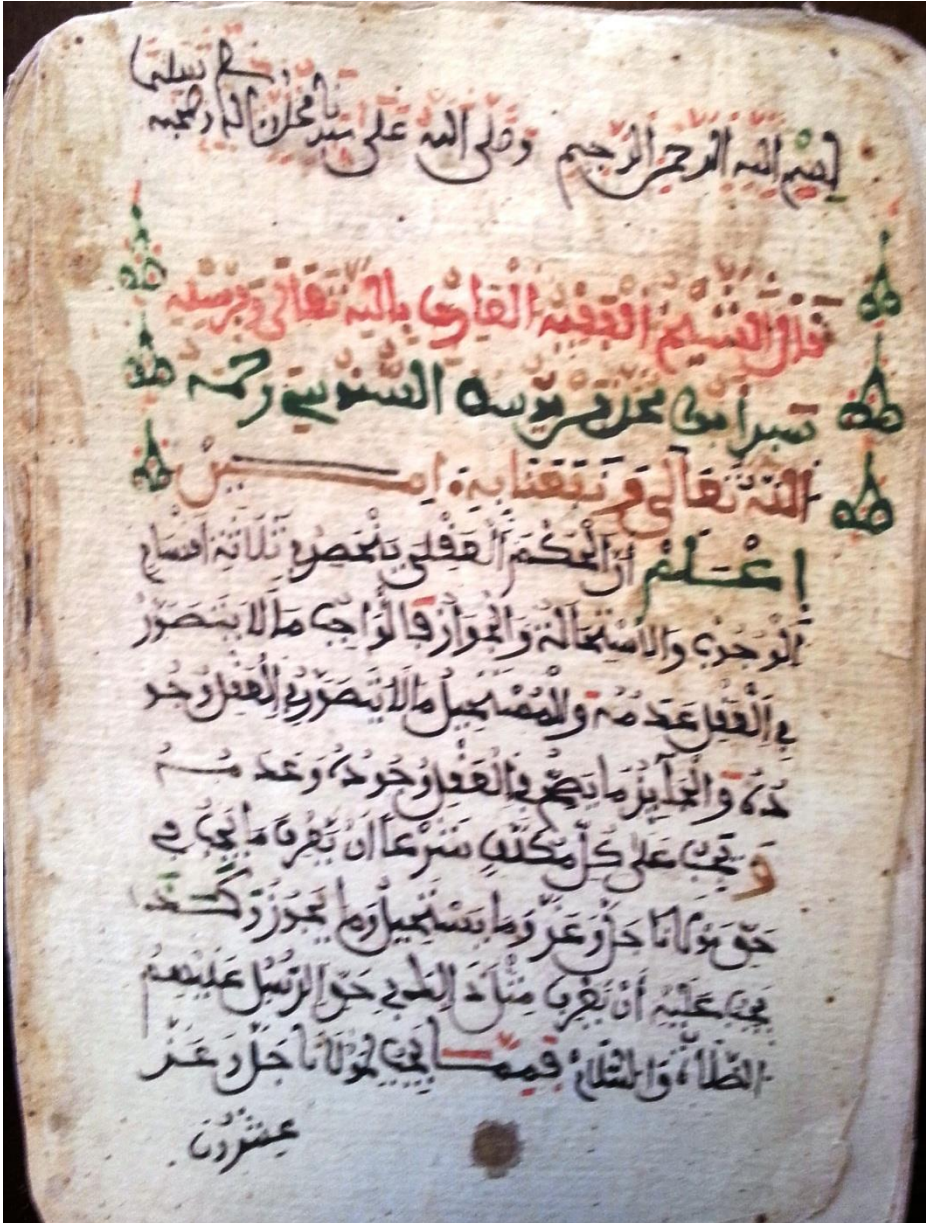 وسلم تسليما
بسم الله الرحمن الرحيم وصلى الله على سيدنا محمد وءاله وصحبه
قال الشيخ الفقيه القارئ بالله تعالى وبرسله
سيدي محمد بن يوسف السنوسي رحمه
الله تعالى ونفعنا به ءاميـــن
اعلم أن الحكم العقلي ينحصر في ثلاثة أقسام
الوجوب والاستحالة والجواز فالواجب ما لا يتصور
في العقل عدمه والمستحيل ما لا يتصور في العقل وجو
ده والجايز ما يصح في العقل وجوده وعدمه
ويجب على كل مكلف شرعا أن يعرف ما يجب في
حق مولانا جل وعز وما يستحيل وما يجوز وكـــذا
يجب عليه أن يعرف مثل ذالك في حق الرسل عليهم
الصلاة والسلام فممـــا يجب لمولانا جل وعز
عشرون